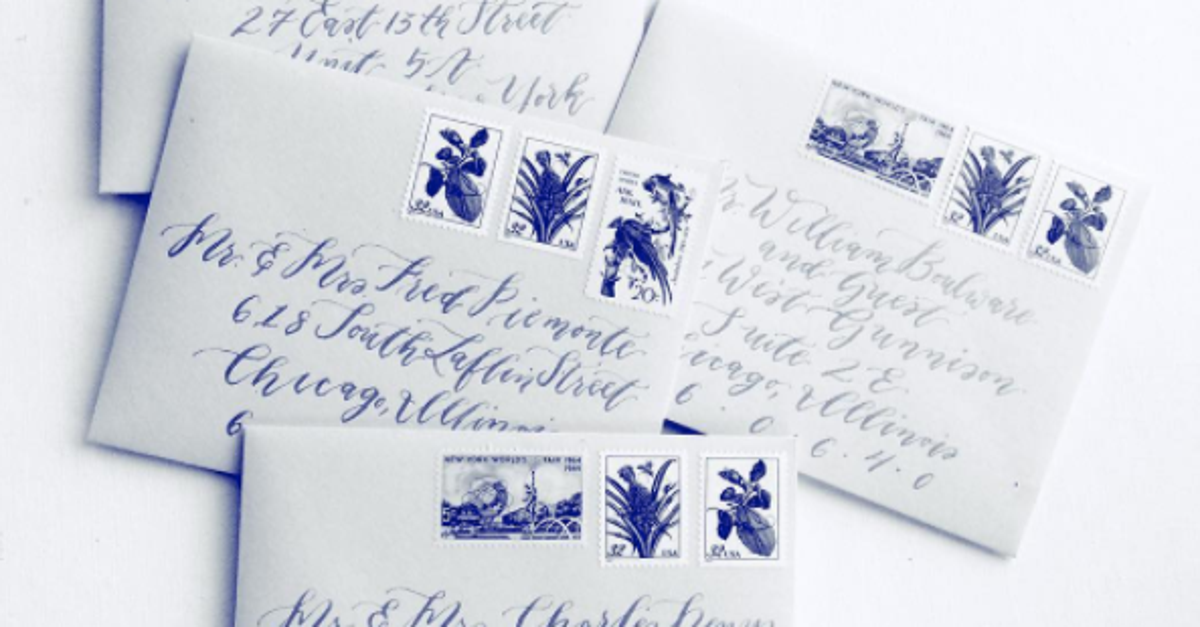 27 East 13th Street
Unit 5A
York
32 USA
32 USA
20c
Mr. & Mrs. Fred Piemonte
628 South Laflin Street
Chicago, Illinois
6
NEW YORK WORLD'S FAIR 1964
1965
32 USA
32 USA
William Boulware
and Guest
West Gunnison
Suite 2E
icago, Illinois
6 . 0 6 . 4 . 0
NEW YORK WORLD'S FAIR 1964
1965
32 USA
32 USA
Mr. & Mrs. Charles